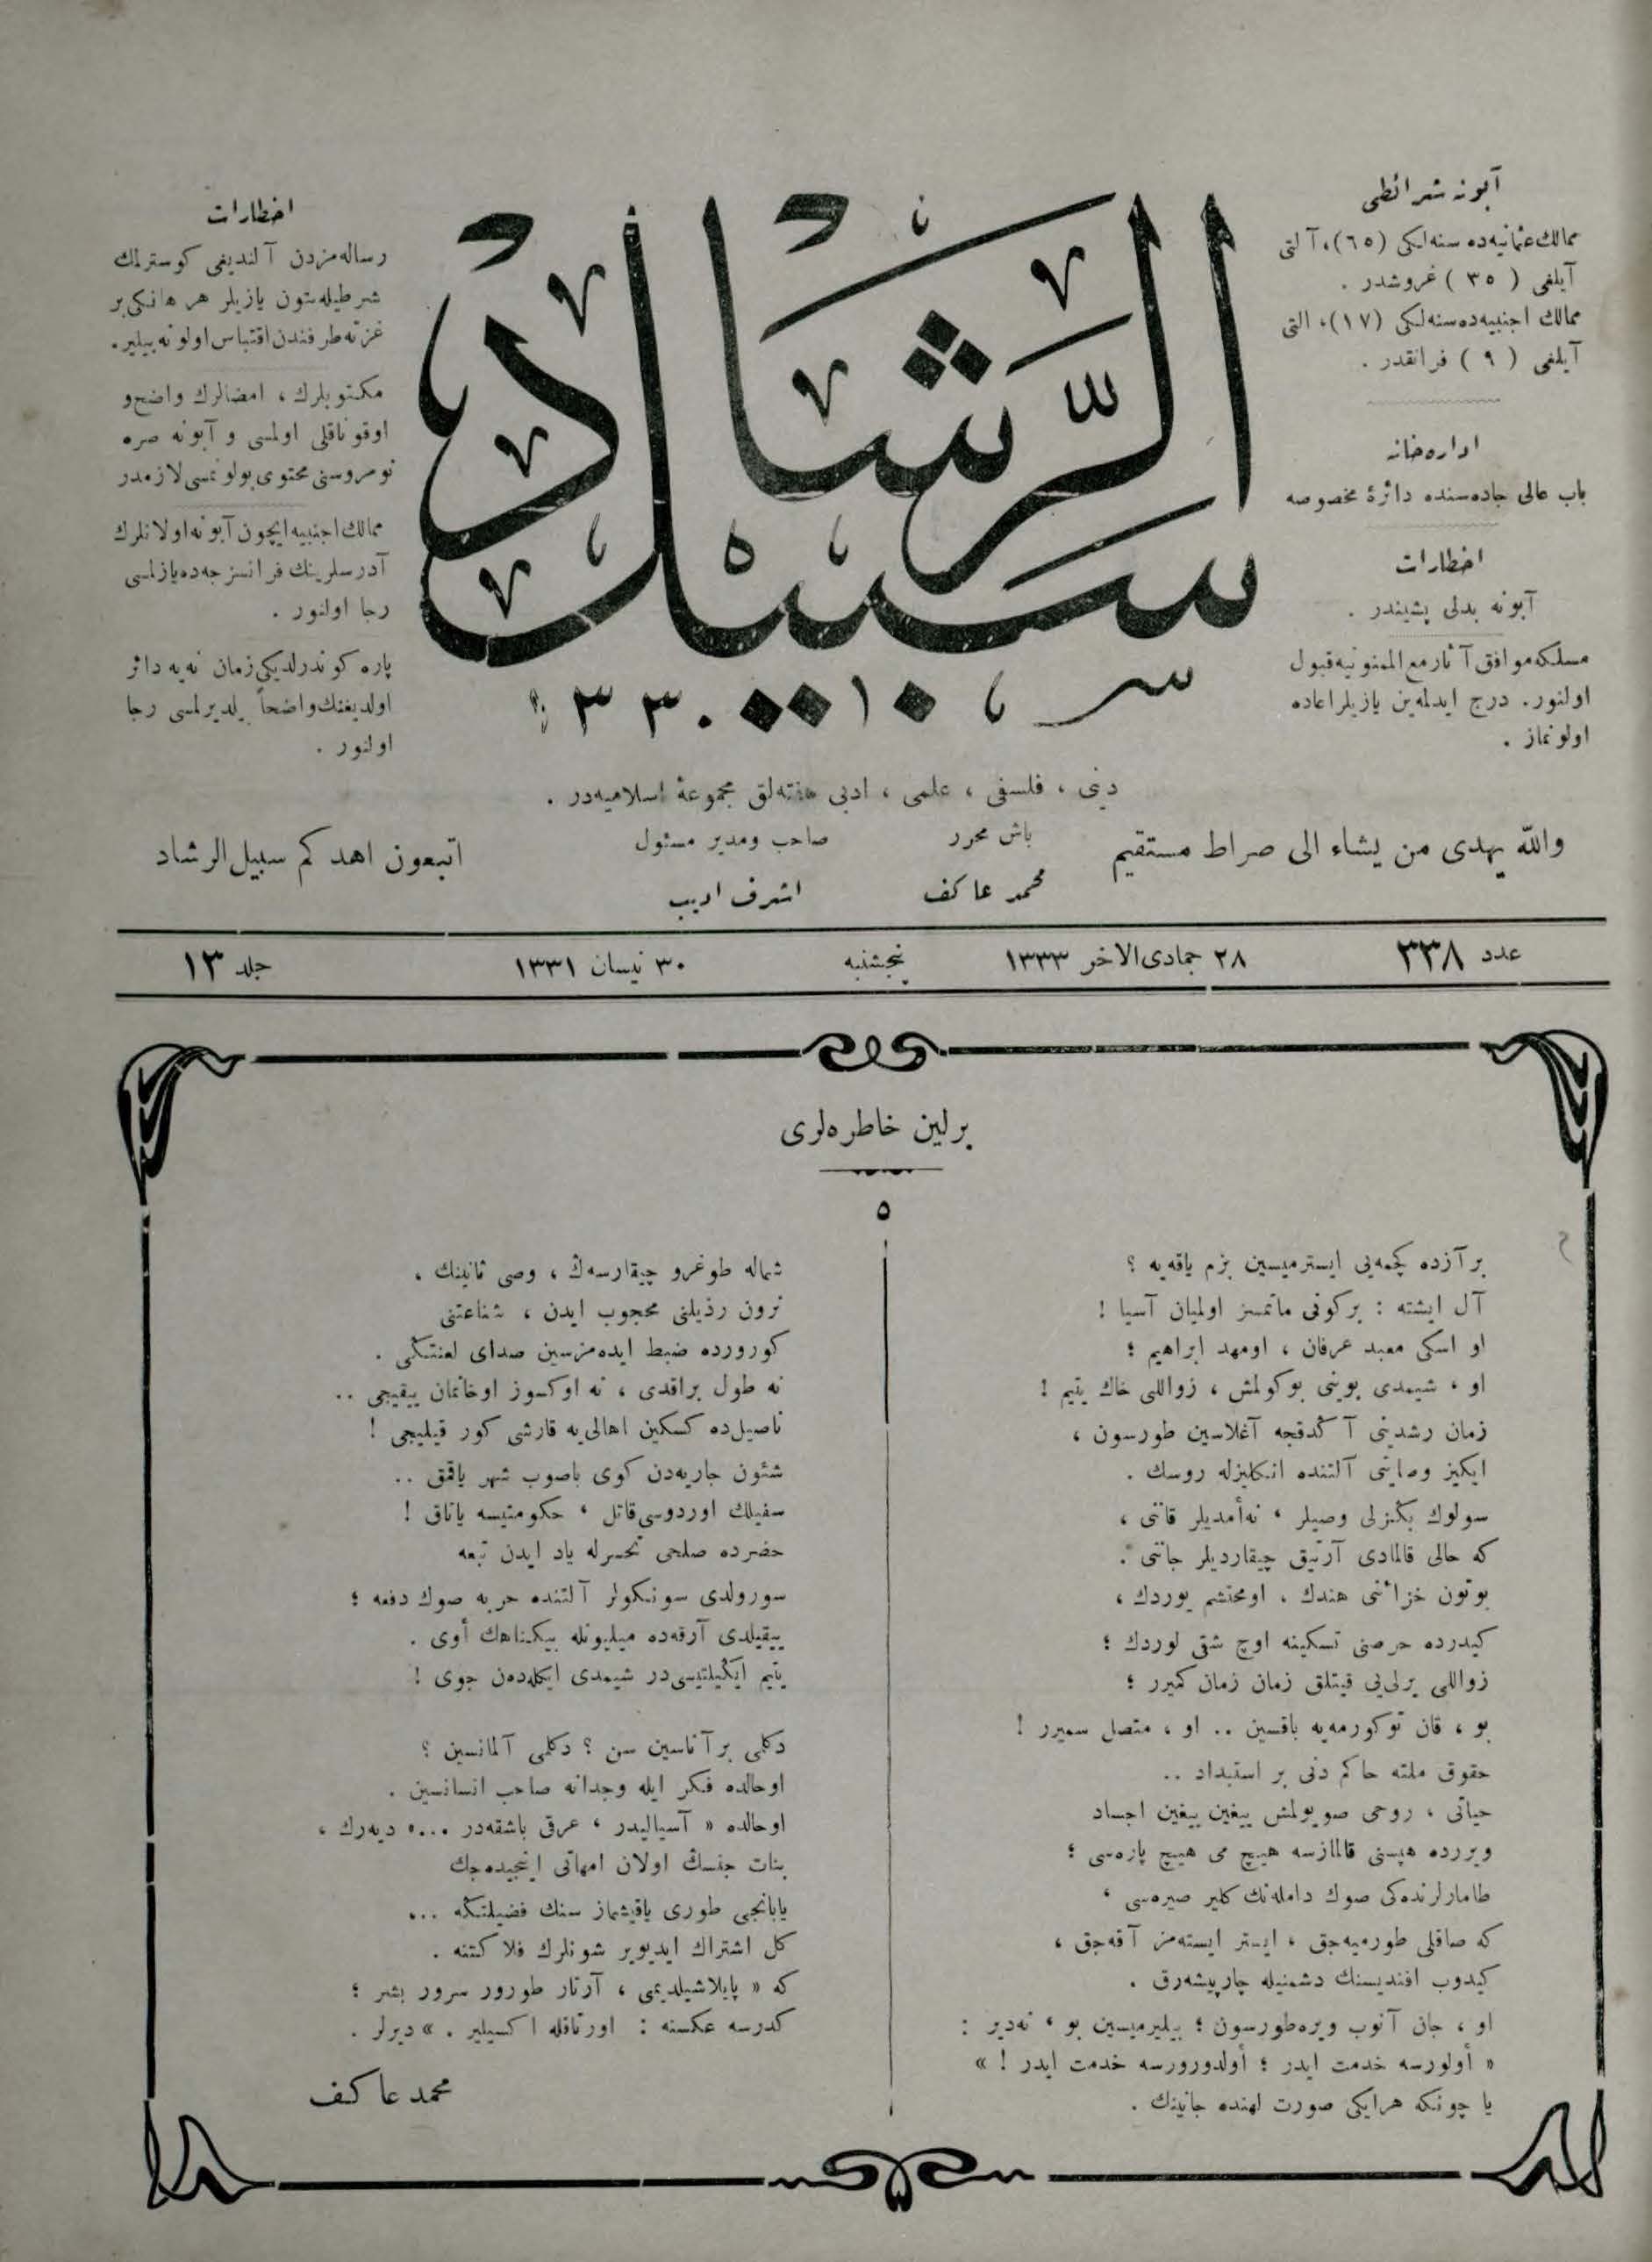 آبونه شرائطی
ممالك عثمانیه‌ده سنه‌لكی (٦٥)، آلتی
آیلغی ( ٣٥ ) غروشدر .
ممالك اجنبیه‌ده سنه‌لكی (١٧)، التی
آیلغی ( ٩ ) فرانقدر .
اداره‌خانه
باب عالی جاده‌سنده دائرهٔ مخصوصه
اخطارات
آبونه بدلی پشیندر .
مسلكه موافق آثار مع الممنونیه قبول
اولنور. درج ایدلمه‌ین یازیلر اعاده
اولونماز .
سبیل الرشاد
اخطارات
رساله‌مزدن آلندیغی كوسترلمك
شرطیله بتون یازیلر هر هانكی بر
غزته طرفندن اقتباس اولونه‌بیلیر.
مكتوبلرك ، امضالرك واضح و
اوقوناقلی اولمسی و آبونه صره
نومروسنی محتوی بولونمسی لازمدر
ممالك اجنبیه ایچون آبونه اولانلرك
آدرسلرینك فرانسزجه‌ده یازلمسی
رجا اولنور .
پاره كوندرلدیكی زمان نه‌یه دائر
اولدیغنك واضحاً بیلدیرلمسی رجا
اولنور .
دینی ، فلسفی ، علمی ، ادبی هفته‌لق مجموعهٔ اسلامیه‌در .
والله یهدی من یشاء الی صراط مستقیم
باش محرر
محمد عاكف
صاحب ومدیر مسئول
اشرف ادیب
اتبعون اهدكم سبیل الرشاد
عدد ٣٣٨
٢٨ جمادی‌الآخر ١٣٣٣
پنجشنبه
٣٠ نیسان ١٣٣١
جلد ١٣
برلین خاطره‌لری
٥
بر آزده كچمه‌یی ایسترمیسین بزم یاقه‌یه ؟
آل ایشته : بر كونی ماتمسز اولمیان آسیا !
او اسكی معبد عرفان ، او مهد ابراهیم ؛
او ، شیمدی بوینی بوكولمش ، زواللی خاك یتیم !
زمان رشدینی آكدقجه آغلاسین طورسون ،
ایكیز وصایتی آلتنده انكلیزله روسك .
سولوك بكزلی وصیلر ، نه أمدیلر قاننی ،
كه حالی قالمادی آرتیق چیقاردیلر جاننی .
بوتون خزائنی هندك ، او محتشم یوردك ،
كیدرده حرصنی تسكینه اوچ شقی لوردك ؛
زواللی یرلی‌یی قیتلق زمان زمان كمیرر ؛
بو ، قان توكورمه‌یه باقسین .. او ، متصل سمیرر !
حقوق ملته حاكم دنی بر استبداد ..
حیاتی ، روحی صویولمش ییغین ییغین اجساد
ویررده هپسنی قالمازسه هیچ می هیچ پاره‌سی ؛
طامارلرنده‌كی صوك دامله‌نك كلیر صیره‌سی ،
كه صاقلی طورمیه‌جق ، ایستر ایسته‌مز آقه‌جق ،
كیدوب افندیسنك دشمنیله چارپیشه‌رق .
او ، جان آتوب ویره‌طورسون ؛ بیلیرمیسین بو ، نه‌دیر :
« أولورسه خدمت ایدر ؛ أولدورورسه خدمت ایدر ! »
یا چونكه هرایكی صورت لهنده جانینك .
شماله طوغرو چیقارسه‌ك ، وصی ثانینك ،
نرون رذیلنی محجوب ایدن ، شناعتنی
كورورده ضبط ایده‌مزسین صدای لعنتكی .
نه طول براقدی ، نه اوكسوز او خانمان ییقیجی ..
ناصیل‌ده كسكین اهالی‌یه قارشی كور قیلیجی !
شئون جاریه‌دن كوی باصوب شهر یاقمق ..
سفیلك اوردوسی قاتل ، حكومتیسه یاتاق !
حضرده صلحی تحسرله یاد ایدن تبعه
سورولدی سونكولر آلتنده حربه صوك دفعه ؛
ییقیلدی آرقه‌ده میلیونله بیكناهك أوی .
یتیم ایكیلتیسی‌در شیمدی ایكله‌دن جوی !
دكلمی بر آناسین سن ؟ دكلمی آلمانسین ؟
او حالده فكر ایله وجدانه صاحب انسانسین .
او حالده « آسیالیدر ، عرقی باشقه‌در ... » دیه‌رك ،
بنات جنسك اولان امهاتی اینجیده‌جك
یابانجی طوری یاقیشماز سنك فضیلتكه ...
كل اشتراك ایدیویر شونلرك فلاكتنه .
كه « پایلاشیلدیمی ، آرتار طورور سرور بشر ؛
كدرسه عكسنه : اورتاقله اكسیلیر . » دیرلر .
محمد عاكف